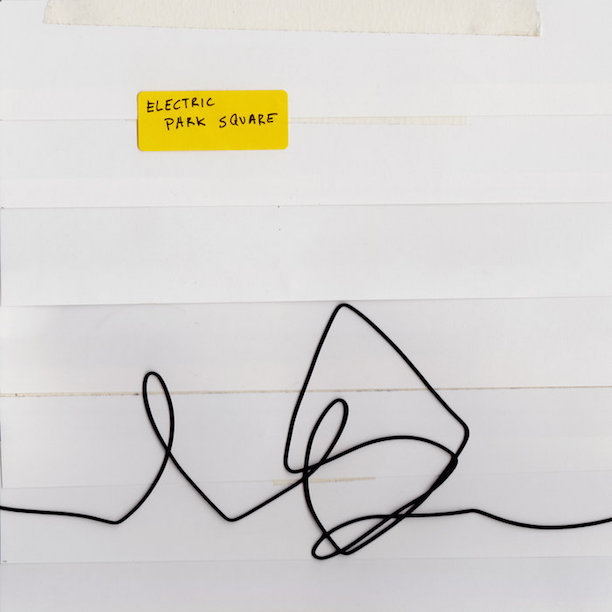 ELECTRIC
PARK SQUARE